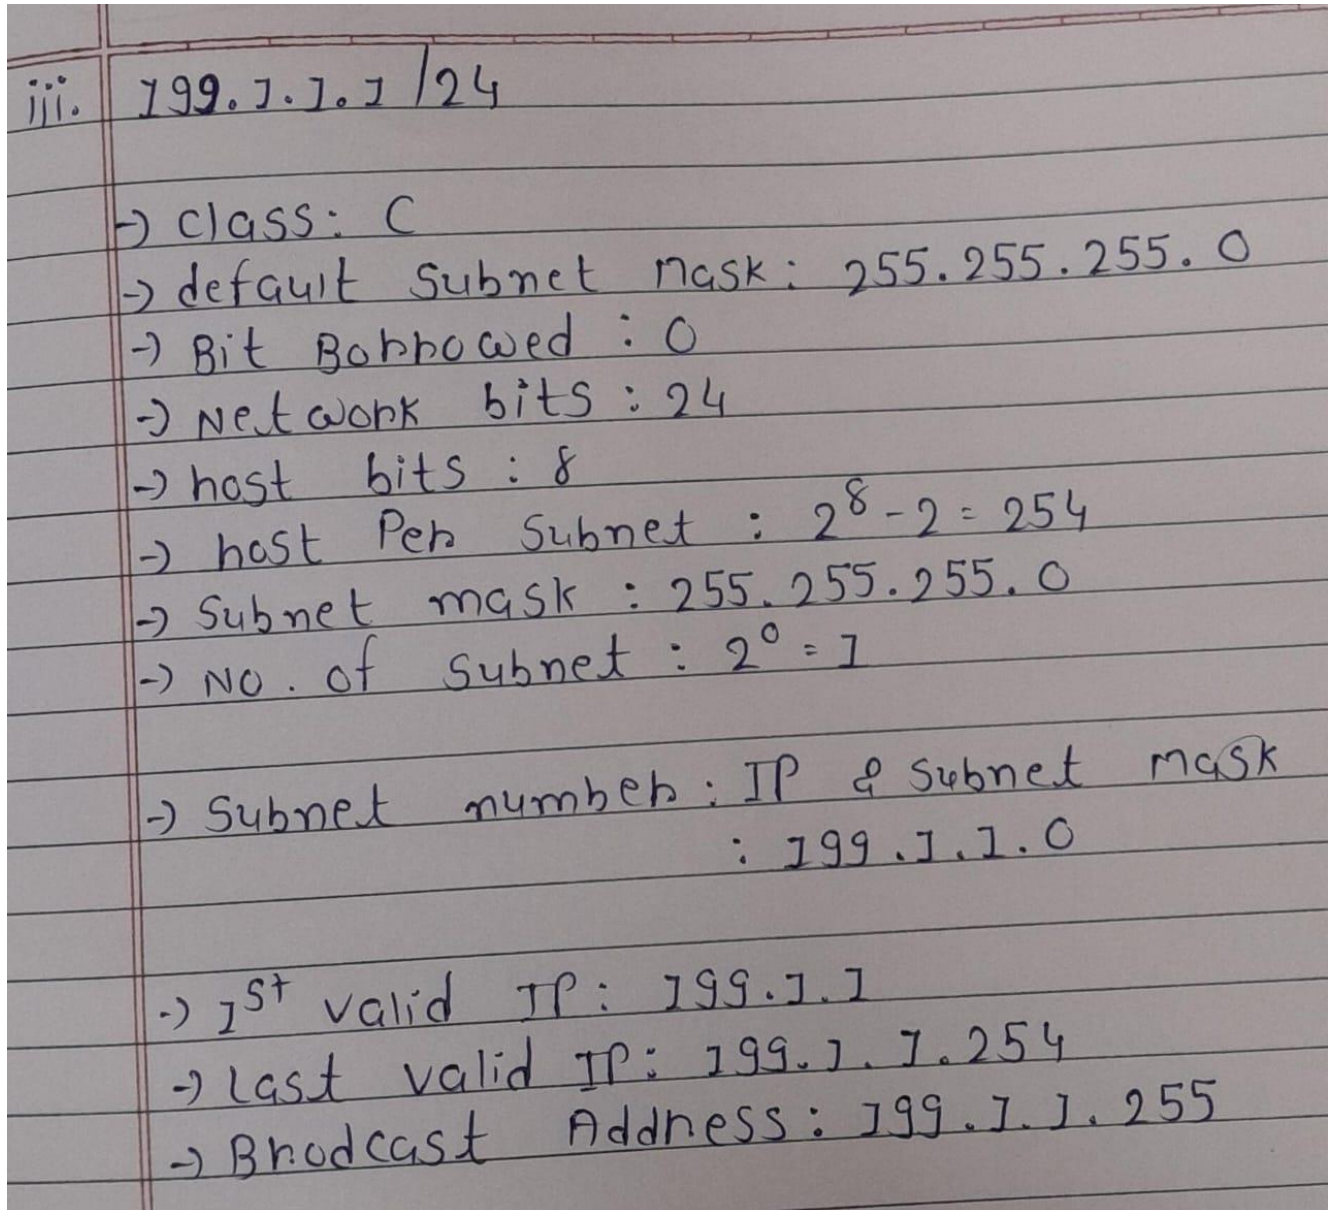 iii. 199.1.1.1 /24
→ class: C
→ default Subnet Mask: 255.255.255.0
→ Bit Borrowed : 0
→ Network bits : 24
→ host bits : 8
→ host Per Subnet : 2⁸-2 = 254
→ Subnet mask : 255.255.255.0
→ No. of Subnet : 2⁰ = 1
→ Subnet number : IP & Subnet mask
: 199.1.1.0
→ 1st valid IP : 199.1.1
→ Last valid IP : 199.1.1.254
→ Brodcast Address : 199.1.1.255